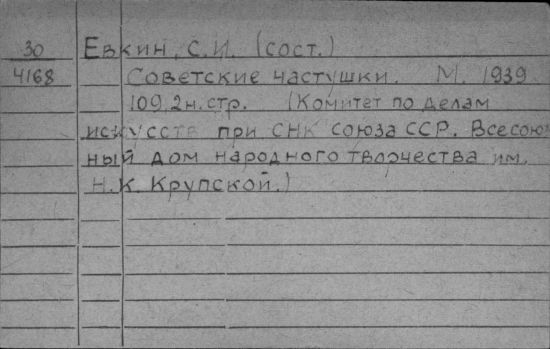 30 Евкин, С.И. (сост.)
4168 Советские частушки. М. 1939
109,2н.стр. (Комитет по делам
искусств при СНК союза ССР. Всесоюз
ный дом народного творчества им.
Н.К. Крупской.)